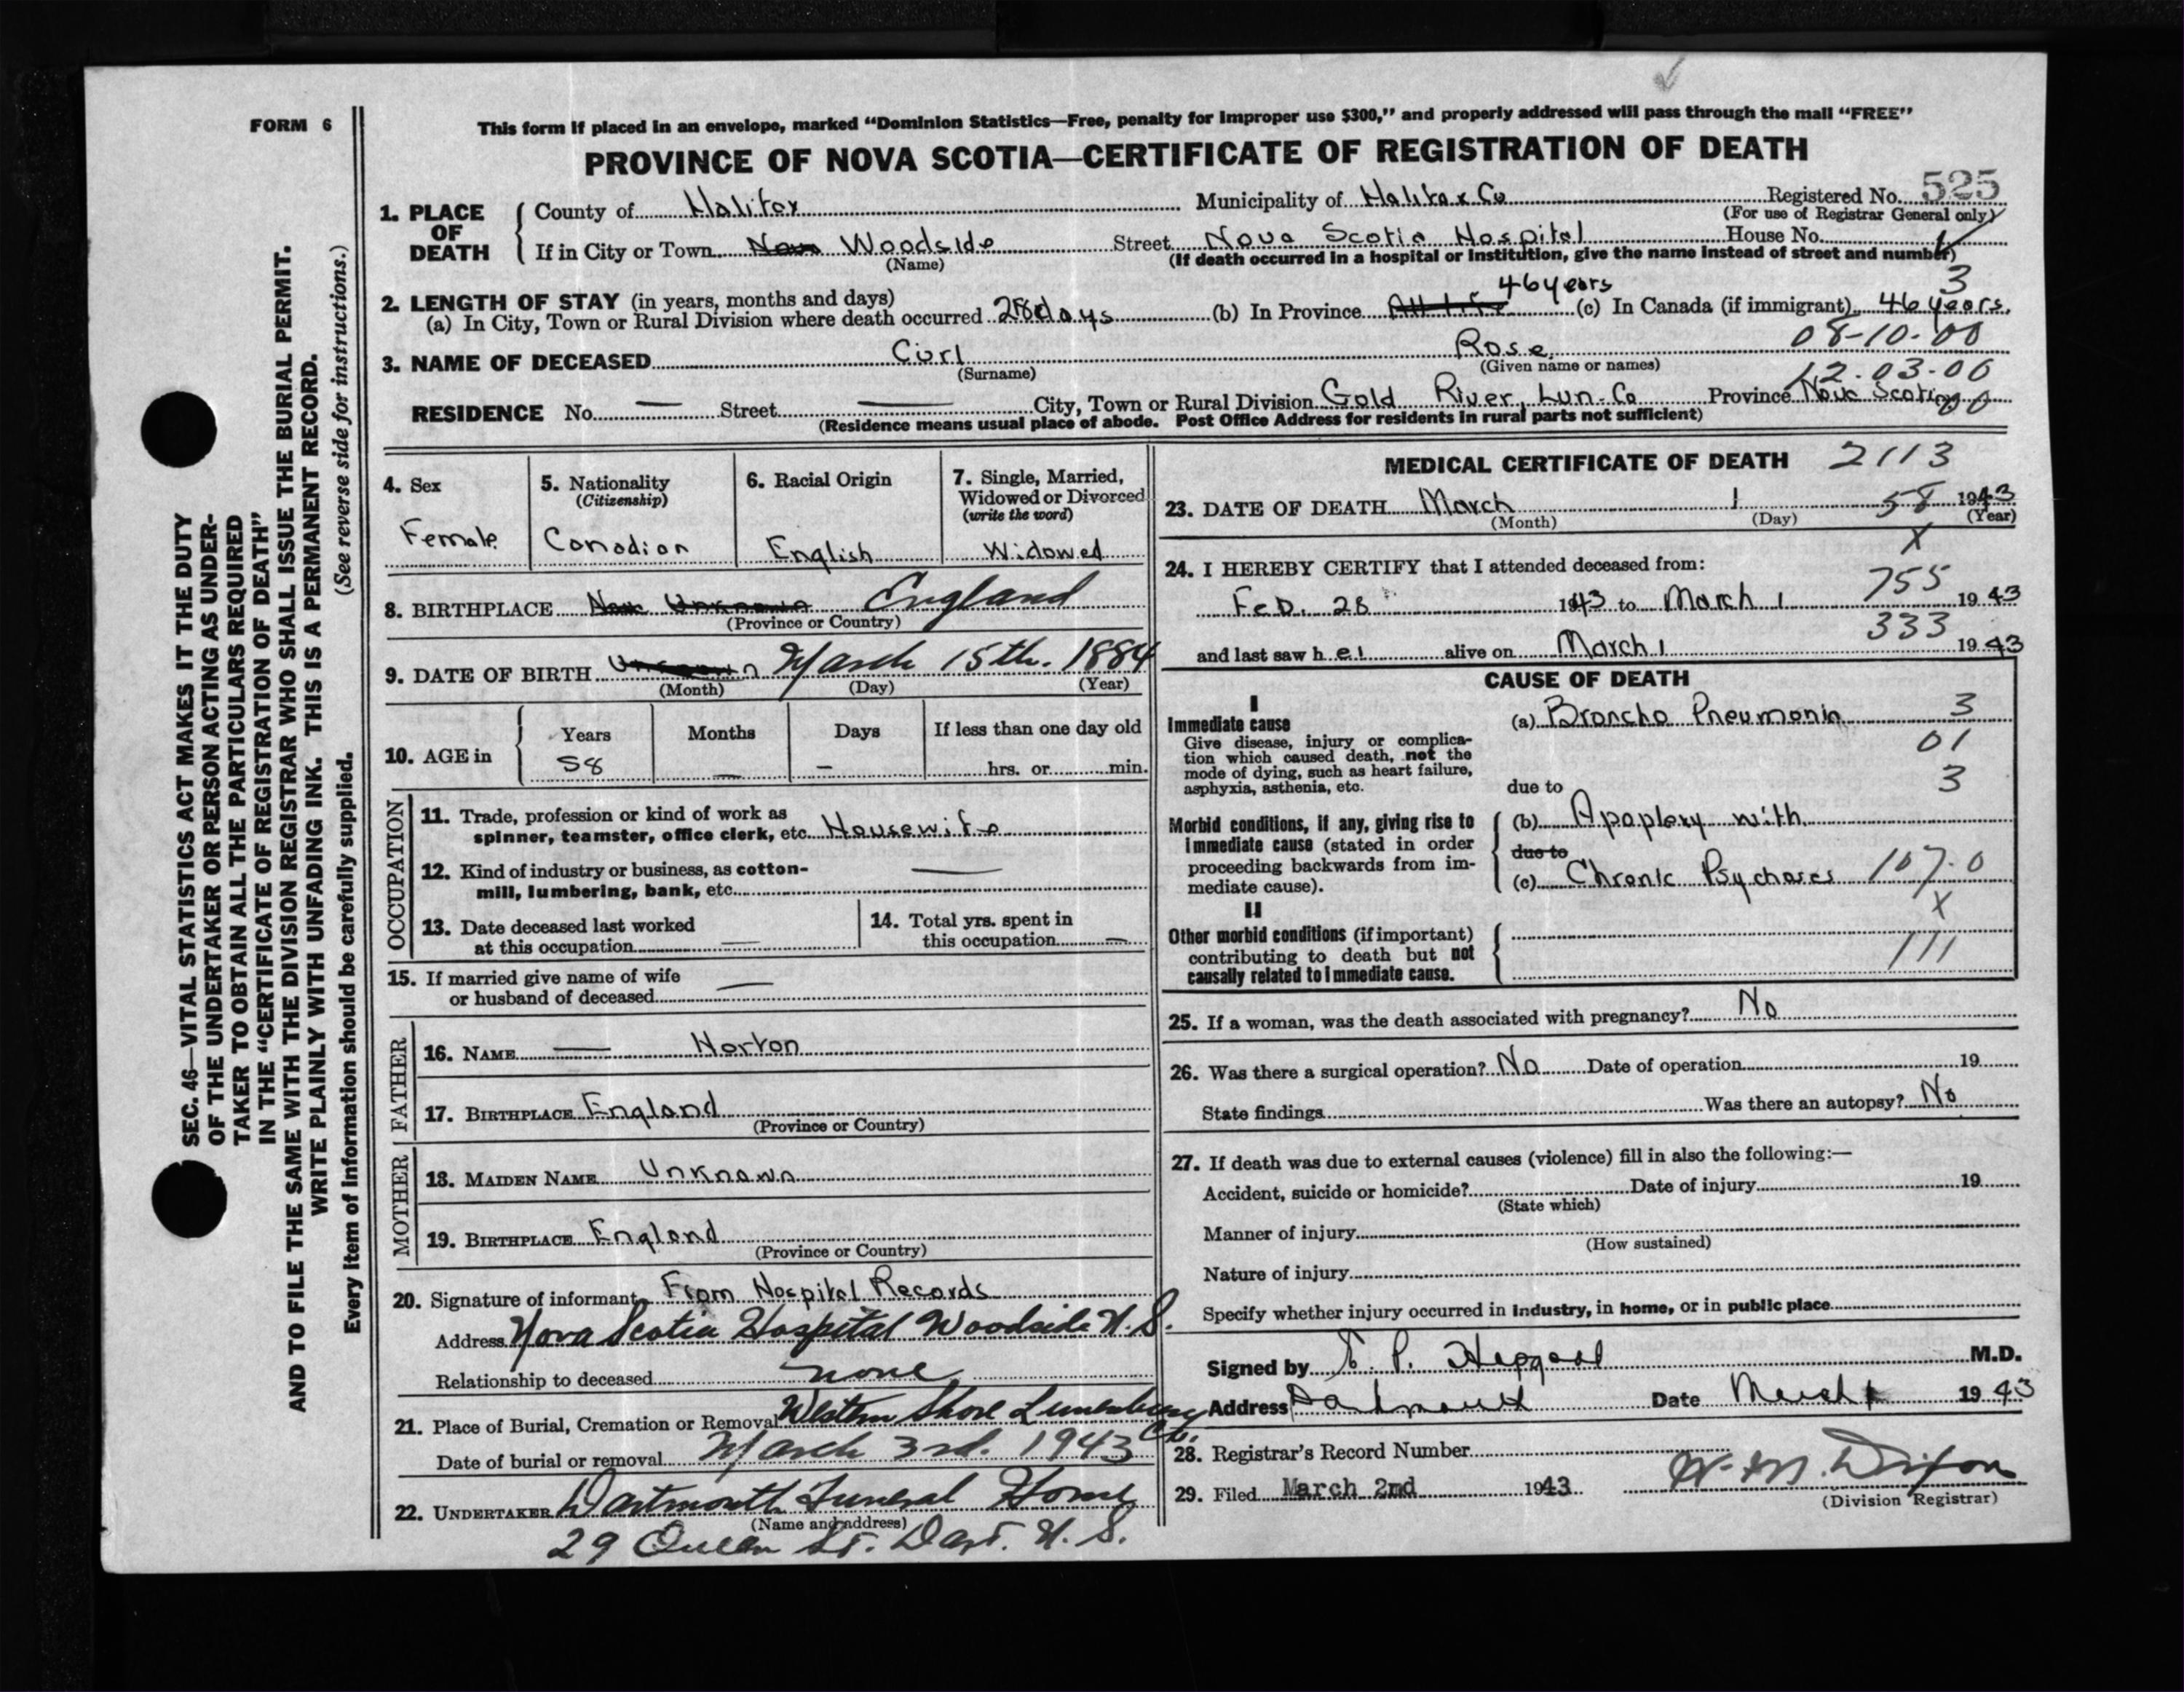 FORM 6
This form if placed in an envelope, marked “Dominion Statistics—Free, penalty for improper use $300,” and properly addressed will pass through the mail “FREE”
PROVINCE OF NOVA SCOTIA—CERTIFICATE OF REGISTRATION OF DEATH
SEC. 46—VITAL STATISTICS ACT MAKES IT THE DUTY
OF THE UNDERTAKER OR PERSON ACTING AS UNDER-
TAKER TO OBTAIN ALL THE PARTICULARS REQUIRED
IN THE “CERTIFICATE OF REGISTRATION OF DEATH”
AND TO FILE THE SAME WITH THE DIVISION REGISTRAR WHO SHALL ISSUE THE BURIAL PERMIT.
WRITE PLAINLY WITH UNFADING INK. THIS IS A PERMANENT RECORD.
Every item of information should be carefully supplied. (See reverse side for instructions.)
1. PLACE OF DEATH
County of Halifax Municipality of Halifax Co Registered No. 525
(For use of Registrar General only)
If in City or Town Nova Woodside Street Nova Scotia Hospital House No.
(Name) (If death occurred in a hospital or institution, give the name instead of street and number)
3
2. LENGTH OF STAY (in years, months and days) 46 years
(a) In City, Town or Rural Division where death occurred 28 days (b) In Province All life (c) In Canada (if immigrant) 46 years.
08-10-00
3. NAME OF DECEASED Curl Rose
(Surname) (Given name or names)
12-03-00
RESIDENCE No. — Street — City, Town or Rural Division Gold River, Lun. Co Province Nova Scotia 00
(Residence means usual place of abode. Post Office Address for residents in rural parts not sufficient)
4. Sex
Female
5. Nationality
(Citizenship)
Canadian
6. Racial Origin
English
7. Single, Married,
Widowed or Divorced
(write the word)
Widowed
8. BIRTHPLACE Unknown England
(Province or Country)
9. DATE OF BIRTH Unknown March 15th. 1884
(Month) (Day) (Year)
10. AGE in
Years Months Days If less than one day old
58 — — hrs. or min.
OCCUPATION
11. Trade, profession or kind of work as
spinner, teamster, office clerk, etc. Housewife
12. Kind of industry or business, as cotton-
mill, lumbering, bank, etc. —
13. Date deceased last worked
at this occupation —
14. Total yrs. spent in
this occupation —
15. If married give name of wife
or husband of deceased —
FATHER
16. NAME — Horton
17. BIRTHPLACE England
(Province or Country)
MOTHER
18. MAIDEN NAME Unknown
19. BIRTHPLACE England
(Province or Country)
20. Signature of informant From Hospital Records
Address Nova Scotia Hospital Woodside N.S.
Relationship to deceased none
21. Place of Burial, Cremation or Removal Western Shore Lunenburg Co.
Date of burial or removal March 3rd. 1943
22. UNDERTAKER Dartmouth Funeral Home
(Name and address)
29 Queen St. Dart. N.S.
MEDICAL CERTIFICATE OF DEATH 2113
23. DATE OF DEATH March 1 58 1943
(Month) (Day) (Year)
X
24. I HEREBY CERTIFY that I attended deceased from:
Feb. 28 1943 to March 1 755 1943
333
and last saw her alive on March 1 1943
CAUSE OF DEATH
I
Immediate cause
Give disease, injury or complica-
tion which caused death, not the
mode of dying, such as heart failure,
asphyxia, asthenia, etc.
(a) Broncho Pneumonia 3
01
due to 3
Morbid conditions, if any, giving rise to
immediate cause (stated in order
proceeding backwards from im-
mediate cause).
(b) Apoplexy with
due to
(c) Chronic Psychoses 107-0
X
II
Other morbid conditions (if important)
contributing to death but not
causally related to immediate cause.
111
25. If a woman, was the death associated with pregnancy? No
26. Was there a surgical operation? No Date of operation 19
State findings Was there an autopsy? No
27. If death was due to external causes (violence) fill in also the following:—
Accident, suicide or homicide? Date of injury 19
(State which)
Manner of injury
(How sustained)
Nature of injury
Specify whether injury occurred in industry, in home, or in public place
Signed by P. M.D.
Address Dartmouth Date March 1 1943
28. Registrar’s Record Number
29. Filed March 2nd 1943 W. M. Dixon
(Division Registrar)